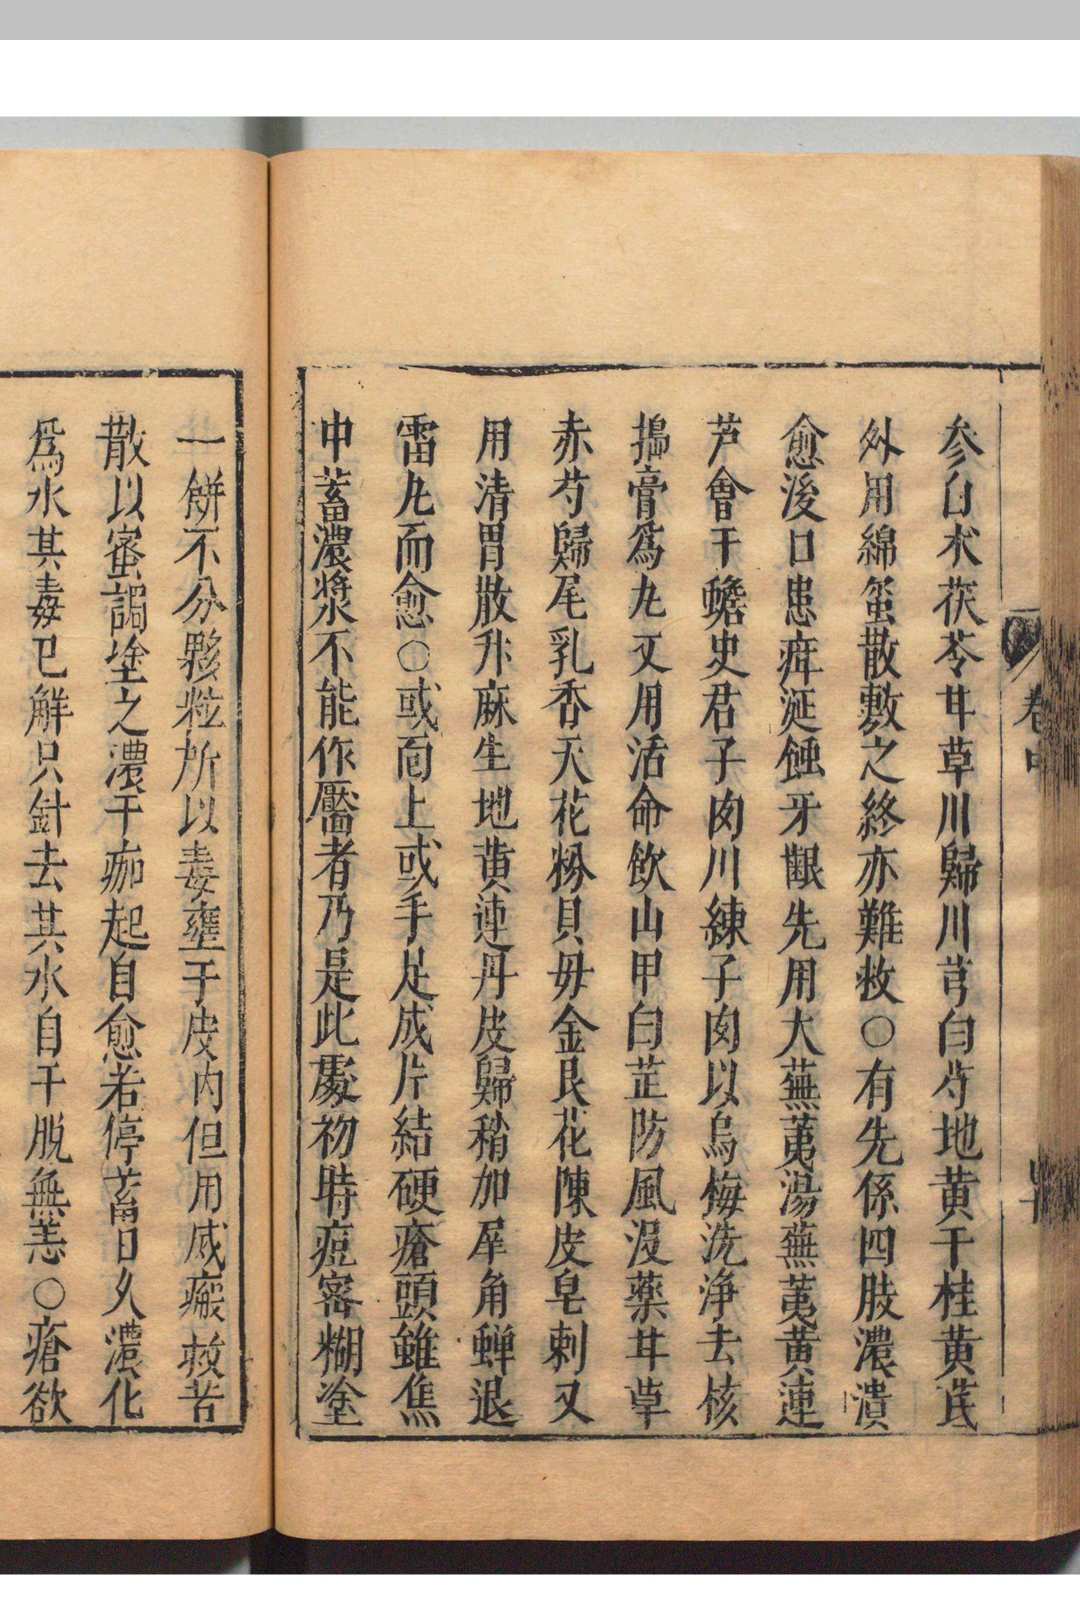 卷中
四十
参白朮茯苓甘草川歸川芎白芍地黄干桂黄芪
外用綿蛋散敷之終亦難救○有先係四肢濃潰
愈後口患疳涎蝕牙齦先用大蕪荑湯蕪荑黄連
芦會干蟾史君子肉川練子肉以烏梅洗净去核
搗膏爲丸又用活命飲山甲白芷防風没藥甘草
赤芍歸尾乳香天花粉貝毋金艮花陳皮皂刺又
用清胃散升麻生地黄連丹皮歸稍加犀角蟬退
雷丸而愈○或面上或手足成片結硬瘡頭雖焦
中蓄濃漿不能作靨者乃是此處初時痘密糊塗
一餅不分夥粒所以毒壅于皮内但用烕瘢救苦
散以蜜調塗之濃干痂起自愈若停蓄日久濃化
爲水其毒已解只針去其水自干脫無恙○瘡欲